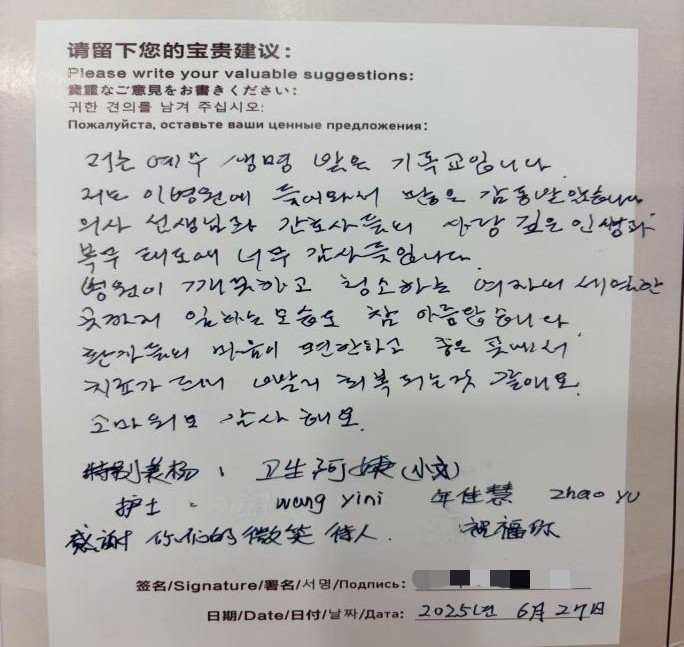 请留下您的宝贵建议：
Please write your valuable suggestions:
貴重なご意見をお書きください：
귀한 견의를 남겨 주십시오:
Пожалуйста, оставьте ваши ценные предложения:
저는 예수 생명 받은 기독교입니다.
저는 이병원에 들어와서 많은 감동받았습니다.
의사 선생님과 간호사들의 사랑 깊은 인생과
복무 태도에 너무 감사듯입니다.
병원이 깨끗하고 청소하는 여자의 세밀한
곳까지 일하는모습도 참 아름답습니다
환자들의 마음이 편안하고 좋은 곳에서
치료가 되니 빨리 회복 되는것 같애요.
감사 해요.
特别美杨： 卫生阿姨（小文）
护士： wang yini 年佳慧 zhao yu
感谢 你们的微笑 待人. 祝福你
签名/Signature/署名/서명/Подпись:
日期/Date/日付/날짜/Дата: 2025년 6月27日